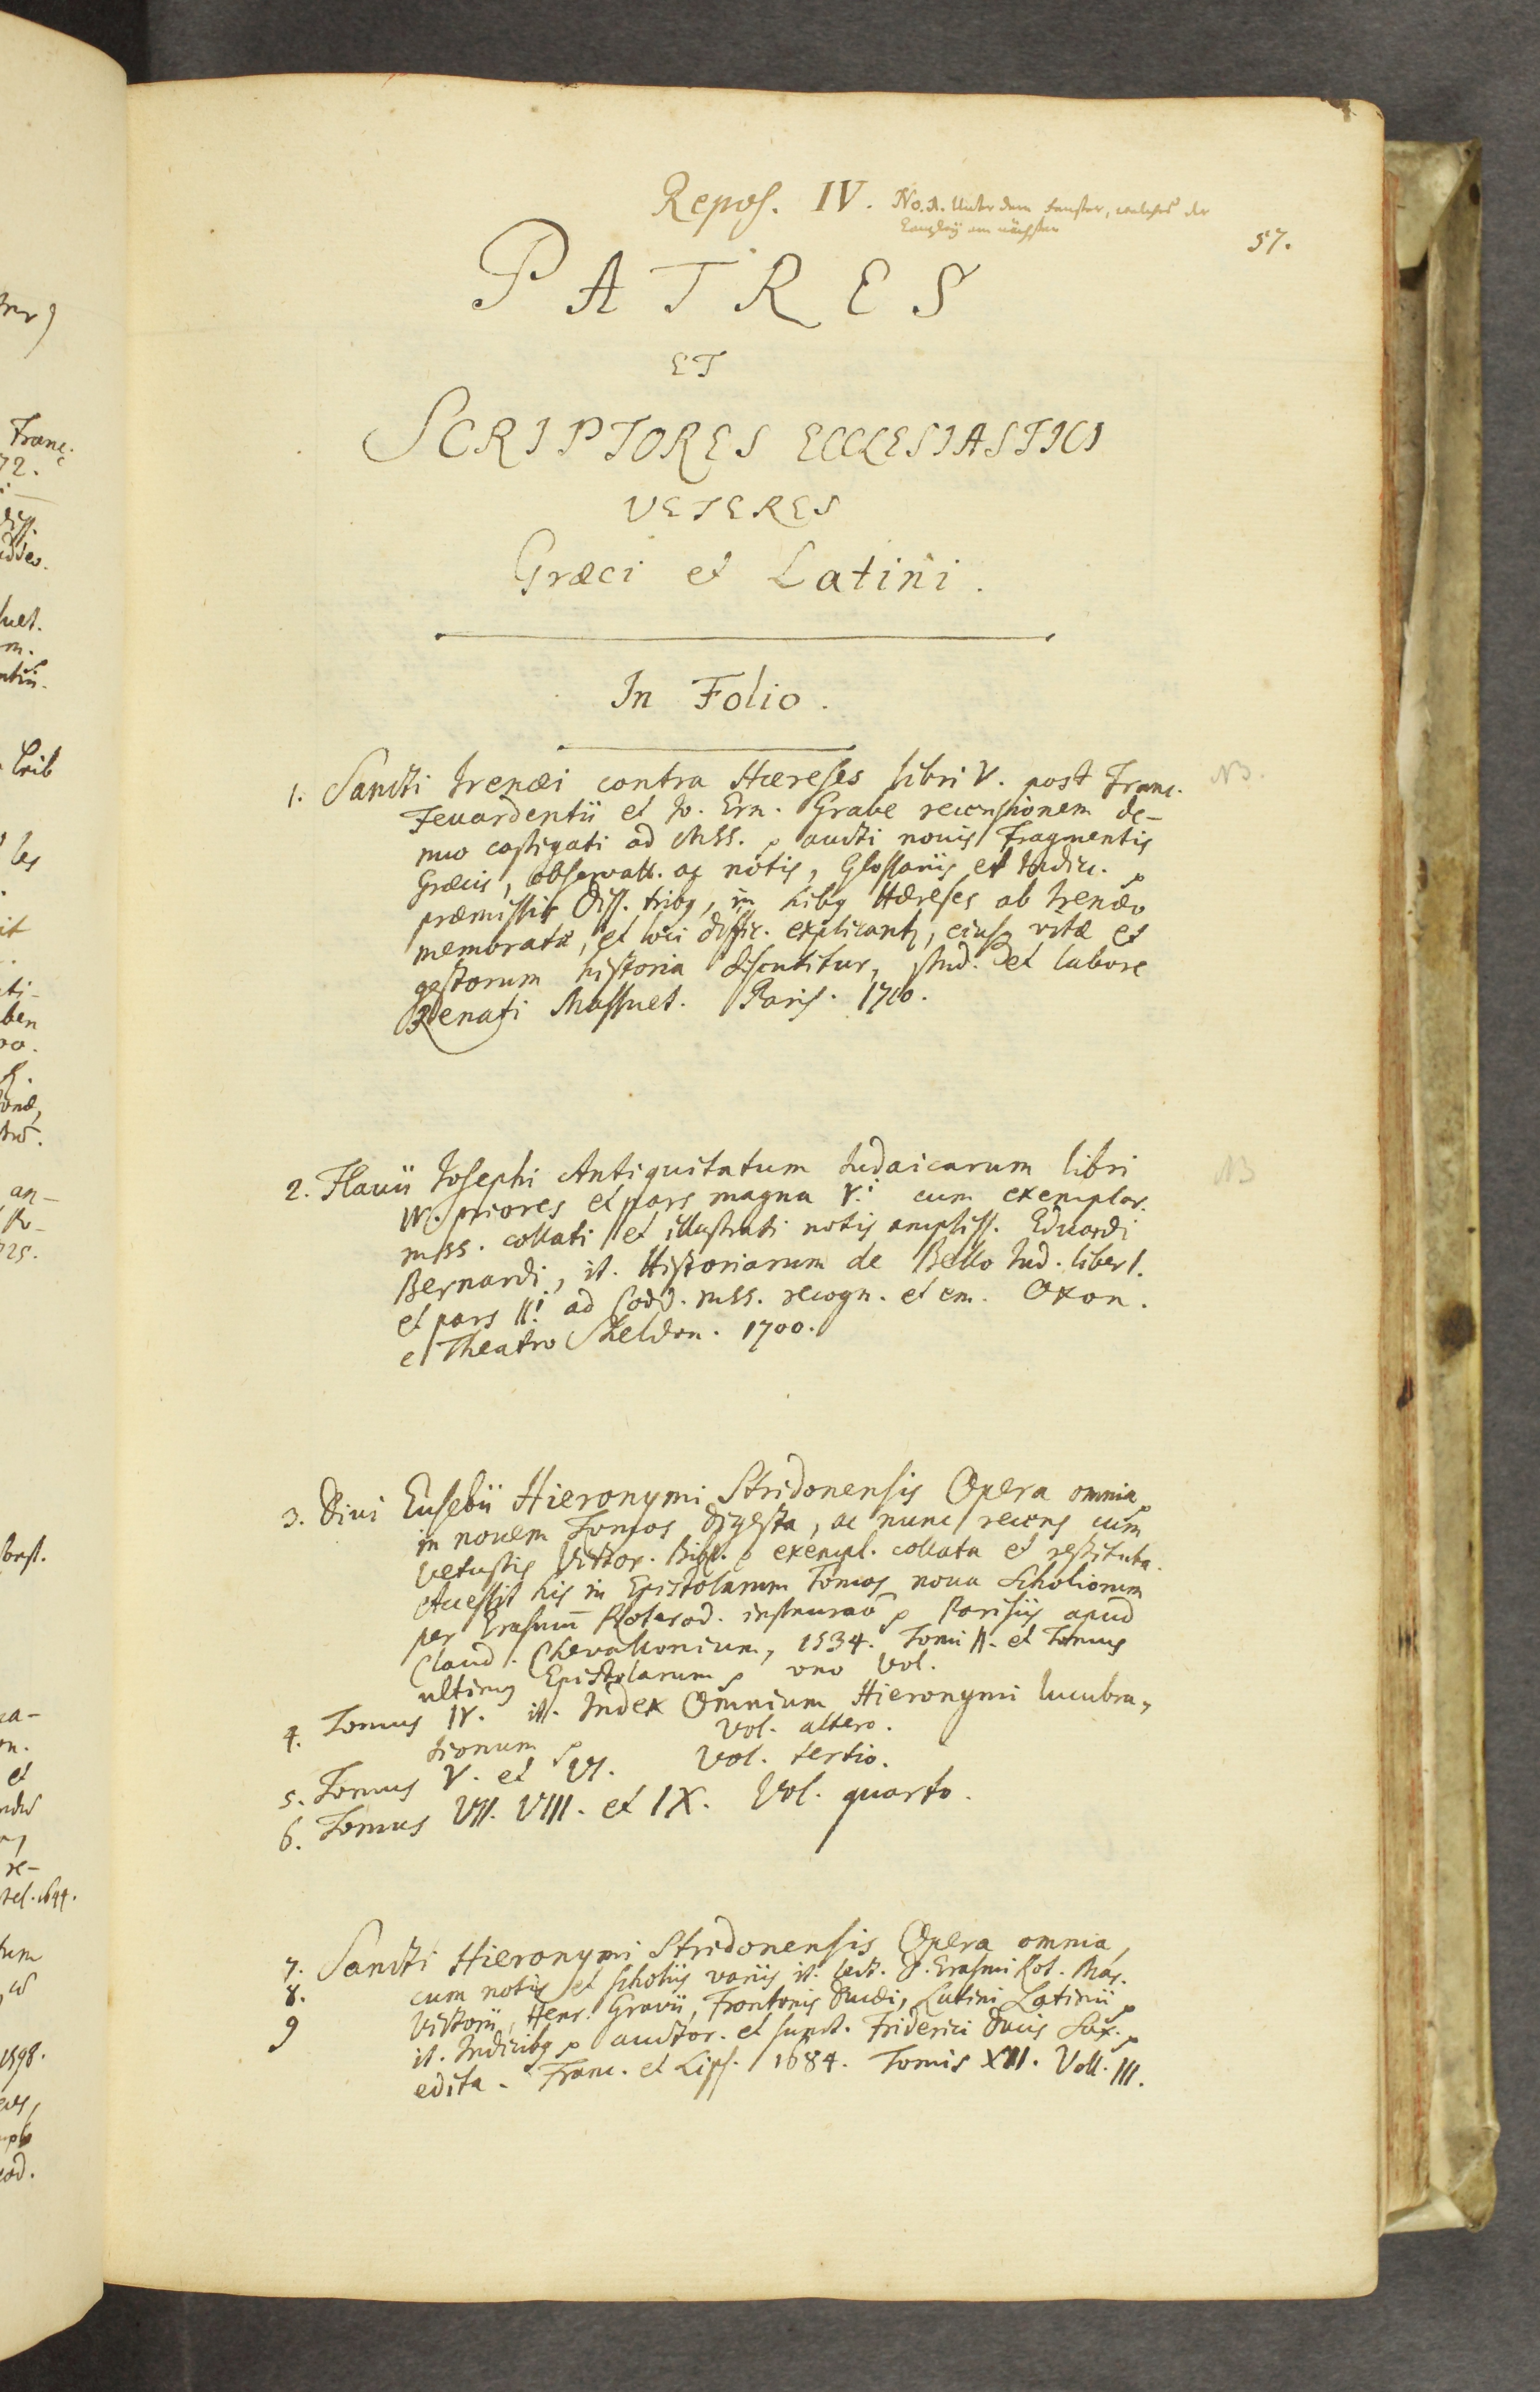 Repos. IV. No. A. Unter dem Fenster, welches der
Canzley am nächsten
57.
PATRES
ET
SCRIPTORES ECCLESIASTICI
VETERES
Græci et Latini.
In Folio.
1. Sancti Irenæi contra Hæreses libri V. post Franc.
NB.
Feuardentii et Jo. Ern. Grabe recensionem de-
nuo castigati ad Mss. aucti nouis Fragmentis
Græcis, observatt. ac notis, Glossariis et Indicc.
præmissis Diss. tribq, in hibq Hæreses ab Irenæo
memoratæ, et loci diffic. explicantr, eiusq vitæ et
gestorum historia discutitur, stud. et labore
Renati Massuet. Paris. 1710.
2. Flauii Josephi Antiquitatum Judaicarum libri
NB
IV. priores et pars magna V.i cum exemplar.
mss. collati et illustrati notis ampliss. Eduardi
Bernardi, it. Historiarum de Bello Jud. liber I.
et pars II.i ad Codd. mss. recogn. et em. Oxon.
e Theatro Sheldon. 1700.
3. Diui Eusebii Hieronymi Stridonensis Opera omnia
in nouem Tomos digesta, ac nunc recens cum
vetustis Victor. Bibl. exempl. collata et restituta.
Accessit his in Epistolarum Tomos noua Scholiorum
per Erasmū Roterod. instauraō Parisiis apud
Claud. Chevallonium, 1534. Tomi II. et Tomus
ultimq Epistolarum uno Vol.
4. Tomus IV. it. Index Omnium Hieronymi lucubra-
tionum Vol. altero.
5. Tomus V. et VI. Vol. tertio.
6. Tomus VII. VIII. et IX. Vol. quarto.
7. Sancti Hieronymi Stridonensis Opera omnia,
8. cum notis et scholiis variis it. lect. D. Erasmi Rot. Mar.
9 Victorii, Henr. Grauii, Frontonis Ducæi, Latini Latinii
it. Indicibq auctor. et sumt. Friderici Ducis Sax.
edita. Franc. et Lips. 1684. Tomis XII. Voll. III.